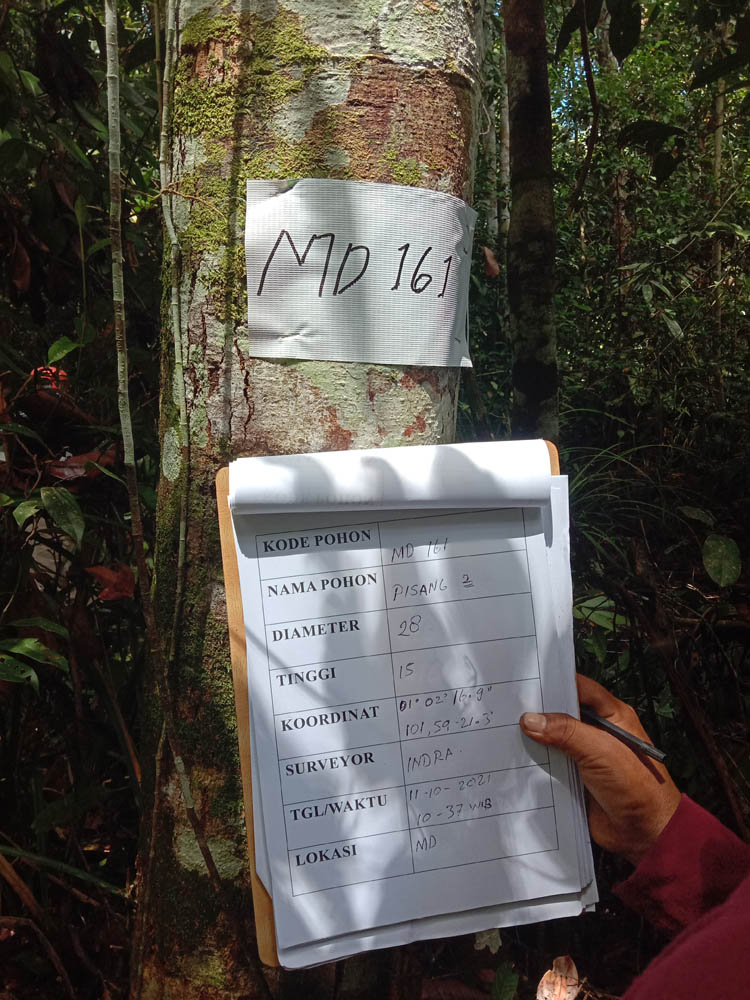 MD 161
KODE POHON MD 161
NAMA POHON PISANG 2
DIAMETER 28
TINGGI 15
KOORDINAT 01° 02' 16.9"
101, 59-21.3"
SURVEYOR INDRA.
TGL/WAKTU 11-10-2021
10-37 WIB
LOKASI MD